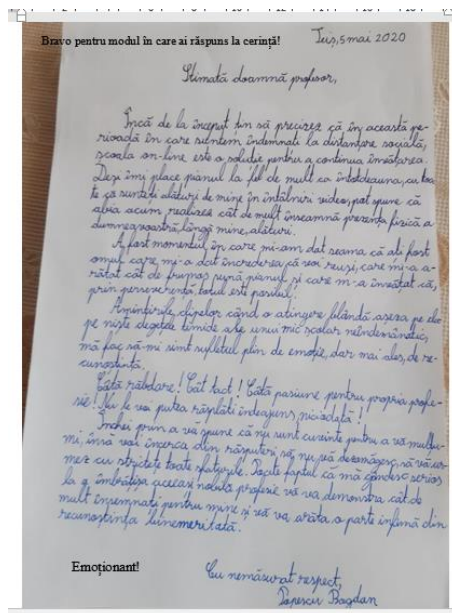 Bravo pentru modul în care ai răspuns la cerință!
Teiș, 5 mai 2020
Stimată doamnă profesor,
Încă de la început țin să precizez că în această pe-
rioadă în care suntem îndemnați la distanțare socială,
școala on-line este o soluție pentru a continua învățarea.
Deși îmi place pianul la fel de mult ca întotdeauna, cu toa-
te că sunteți alături de mine în întâlniri video, pot spune că
abia acum realizez cât de mult înseamnă prezența fizică a
dumneavoastră, lângă mine, alături.
A fost momentul în care mi-am dat seama că ați fost
omul care mi-a dat încrederea că voi reuși, care mi-a a-
rătat cât de frumos sună pianul și care m-a învățat că,
prin perseverență, totul este posibil.
Amintirile clipelor când o atingere blândă așeza pe clape
pe niște degețele timide ale unui mic școlar neîndemânatic,
mă fac să-mi simt sufletul plin de emoție, dar mai ales, de re-
cunoștință.
Câtă răbdare! Cât tact! Câtă pasiune pentru propria profe-
sie! Nu le voi putea răsplăti îndeajuns, niciodată!
Închei prin a vă spune că nu sunt cuvinte pentru a vă mulțu-
mi, însă voi încerca din răsputeri să nu vă dezamăgesc, să vă ur-
mez cu strictețe toate sfaturile. Poate faptul că mă gândesc serios
la a îmbrățișa aceeași nobilă profesie vă va demonstra cât de
mult însemnați pentru mine și vă va arăta o parte infimă din
recunoștința binemeritată.
Emoționant!
Cu nemăsurat respect,
Popescu Bogdan